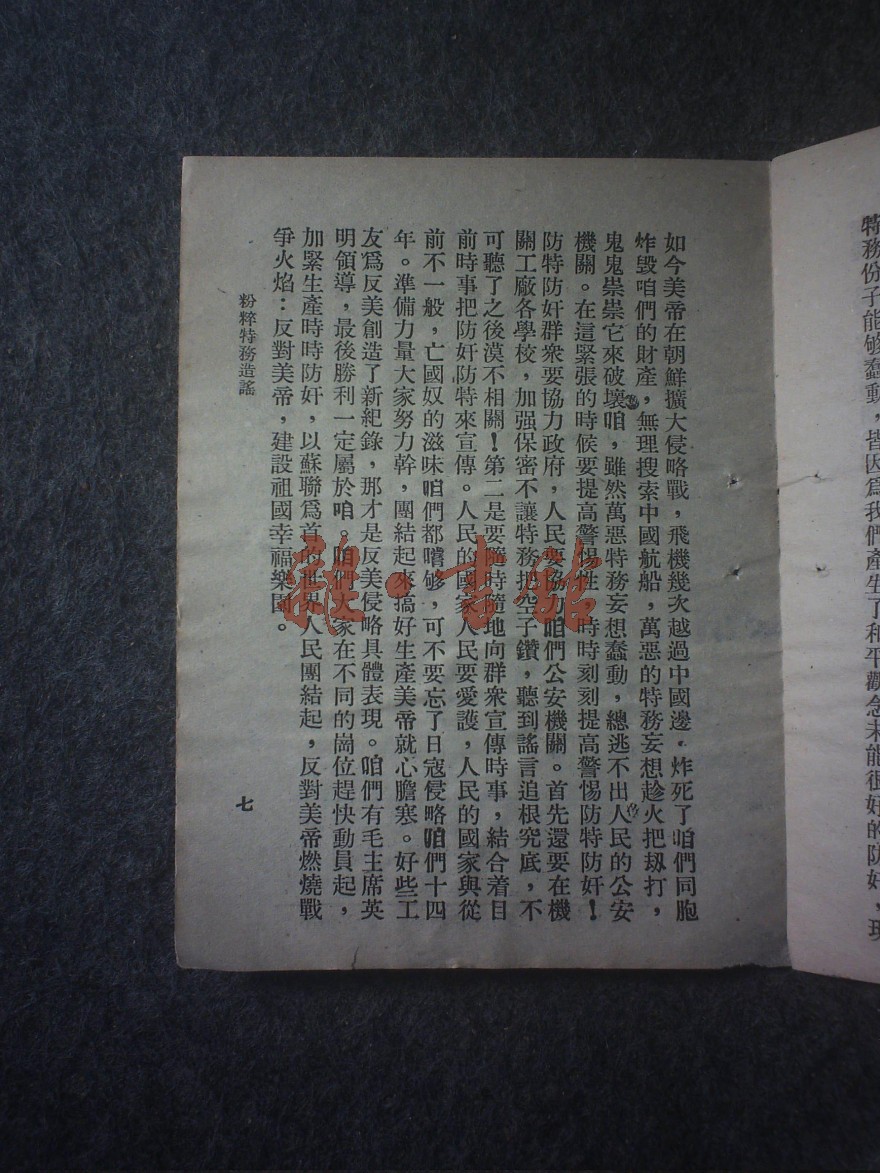 特務份子能够蠢動，皆因爲我們產生了和平觀念未能很好的防奸，現
如今美帝在朝鮮擴大侵略戰，飛機幾次越過中國邊．炸死了咱們同胞
炸毀咱們的財產，無理搜索中國航船，萬惡的特務妄想趁火把刼打，
鬼鬼祟祟它來破壞咱，雖然萬惡特務妄想蠢動，總逃不出人民的公安
機關。在這緊張的時候要提高警惕性，時時刻刻提高警惕防特防奸！
防特防奸群衆要協力政府，人民要協力咱們公安機關。首先還要在機
關工廠各學校，加强保密不讓特務把空子鑽，聽到謠言追根究底，不
可聽了之後漠不相關！第二是要隨時隨地向群衆宣傳時事，結合着目
前時事把防奸防特來宣傳。人民的國家人民要愛護，人民的國家與從
前不一般，亡國奴的滋味咱們都嚐够，可不要忘了日寇侵略咱們十四
年。準備力量大家努力幹，團結起來搞好生產美帝就心膽塞。好些工
友爲反美創造了新紀錄，那才是反美侵略具體表現。咱們有毛主席英
明領導，最後勝利一定屬於咱。咱們大家在不同的崗位趕快動員起，
加緊生產時時防奸，以蘇聯爲首的世界人民團結起，反對美帝燃燒戰
爭火焰：反對美帝，建設祖國幸福樂園。
粉粹特務造謠
七
雜·書館